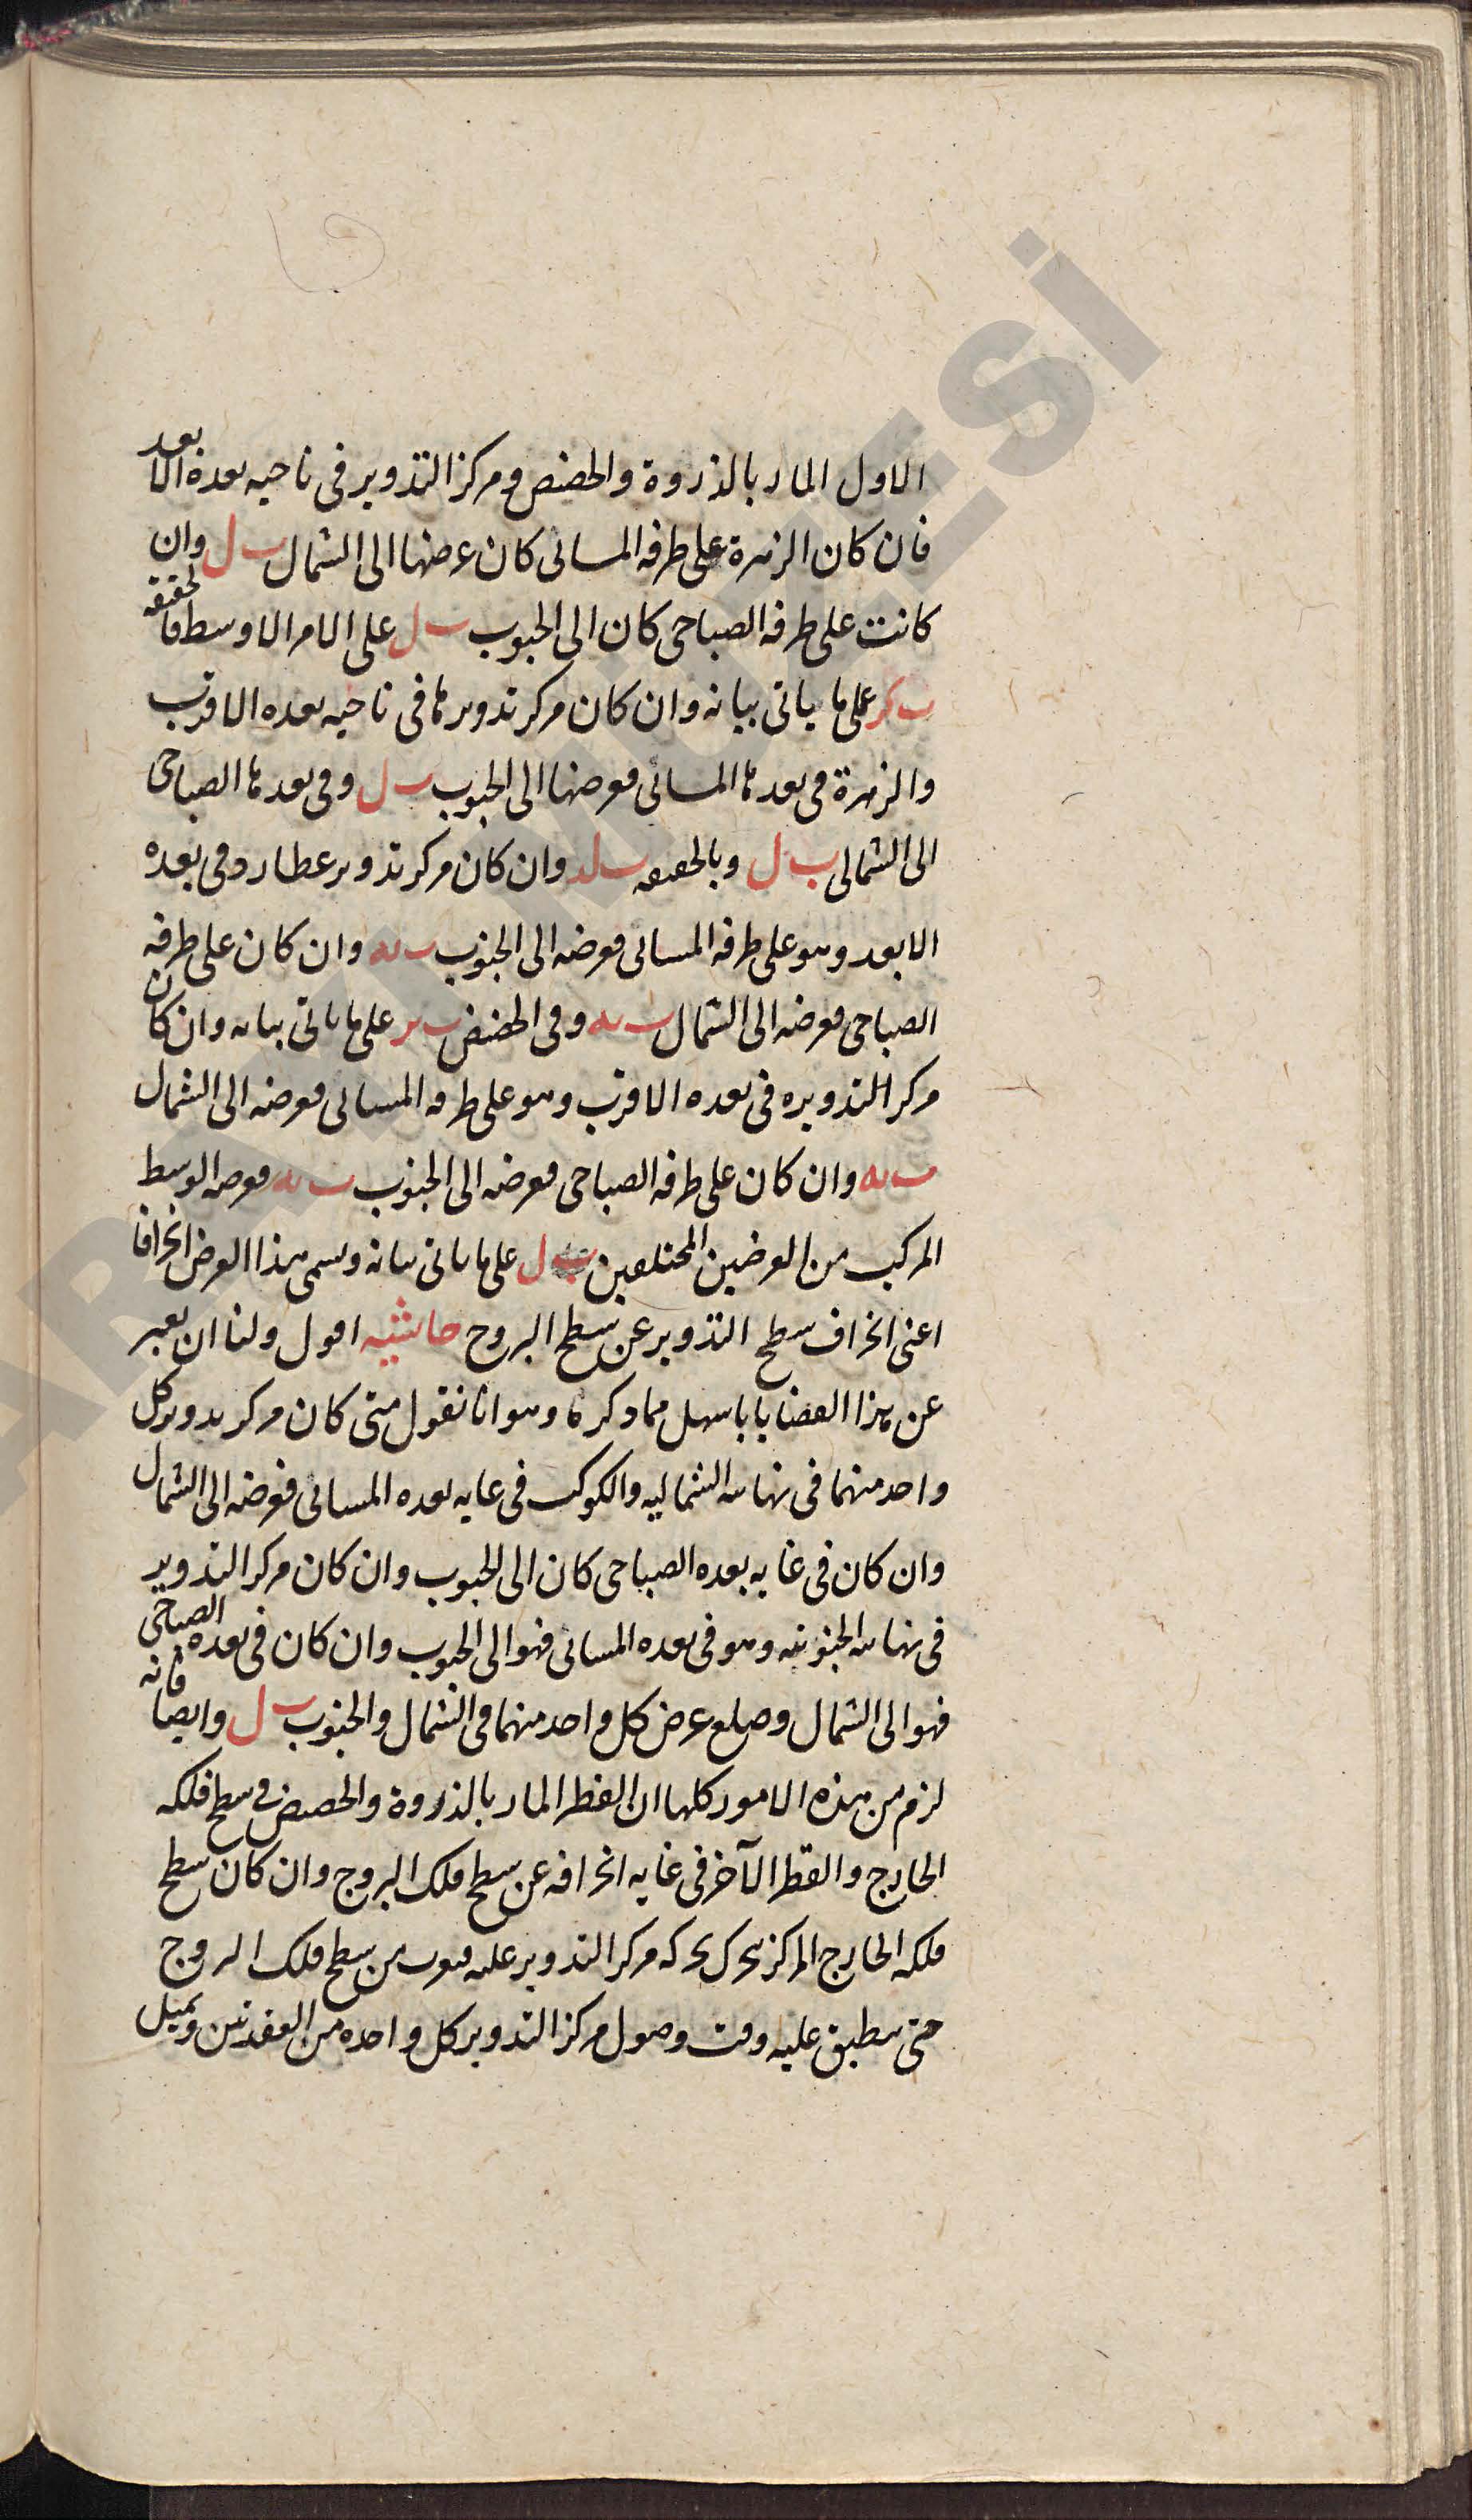 الاول المار بالذروة والحضيض ومركز التدوير فى ناحيه بعده الابعد
فان كان الزهرة على طرفه المسائى كان عرضها الى الشمال ب ل وان
كانت على طرفه الصباحى كان الى الجنوب ب ل على الامر الاوسط فالحقيقه
على ما ياتى بيانه وان كان مركز تدويرها فى ناحيه بعده الاقرب
والزهرة فى بعدها المسائى فعرضها الى الجنوب ب ل وفى بعدها الصباحى
الى الشمالى ب ل وبالحقيقه ب لد وان كان مركز تدوير عطارد فى بعده
الابعد وهو على طرفه المسائى فعرضه الى الجنوب ب يه وان كان على طرفه
الصباحى فعرضه الى الشمال ب يه وفى الحضيض على ما ياتى بيانه وان كان
مركز التدويره فى بعده الاقرب وهو على طرفه المسائى فعرضه الى الشمال
ب يه وان كان على طرفه الصباحى فعرضه الى الجنوب ب يه فعرضه الوسط
المركب من العرضين المختلفين ب ل على ما ياتى بيانه ويسمى هذا العرض انحرافا
اعنى انحراف سطح التدوير عن سطح البروج حاشيه اقول ولنا ان نعبر
عن هذا القضايا باسهل مما ذكره وهو انا نقول متى كان مركز تدوير كل
واحد منهما فى نهايه الشماليه والكوكب فى غايه بعده المسائى فعرضه الى الشمال
وان كان فى غايه بعده الصباحى كان الى الجنوب وان كان مركز التدوير
فى نهايه الجنوبيه وهو فى بعده المسائى فهو الى الجنوب وان كان فى بعده الصباحى
فهو الى الشمال ومبلغ عرض كل واحد منهما فى الشمال والجنوب ب ل وايضا فانه
لزم من هذه الامور كلها ان القطر المار بالذروة والحضيض فى سطح فلكه
الخارج والقطر الآخر فى غايه انحرافه عن سطح فلك البروج وان كان سطح
فلكه الخارج المركز يحرك بحركه مركز التدوير عليه فيقرب من سطح فلك البروج
حتى ينطبق عليه وقت وصول مركز التدوير كل واحده من العقدتين ويميل